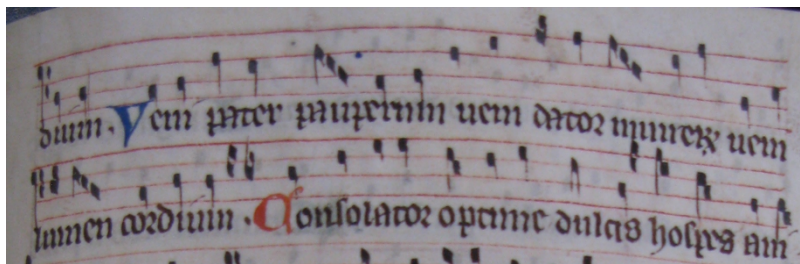 dium. Veni pater pauperum ueni dator muneꝝ ueni
lumen cordium. Consolator optime dulcis hospes ani